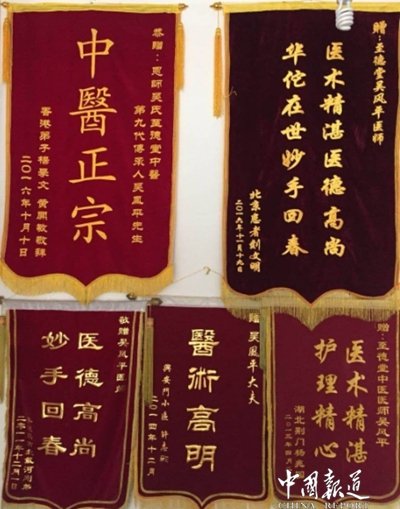 恭赠：恩师吴氏至德堂中醫
第九代傳承人吴鳳平先生
中醫正宗
香港弟子楊景文 黄國敏敬拜
二〇一六年十月十日
赠：至德堂吴风平医师
医术精湛医德高尚
华佗在世妙手回春
北京患者刘文明
二〇一六年十一月十九日
敬赠吴风平医师
医德高尚
妙手回春
戴河
二〇一一年十二月一日
赠 吴鳳平大夫
醫術高明
二〇一四年十二月
赠：至德堂中医医师吴风平
医术精湛
护理精心
湖北荆门杨
二〇一三年四月
中國報道
CHINA REPORT